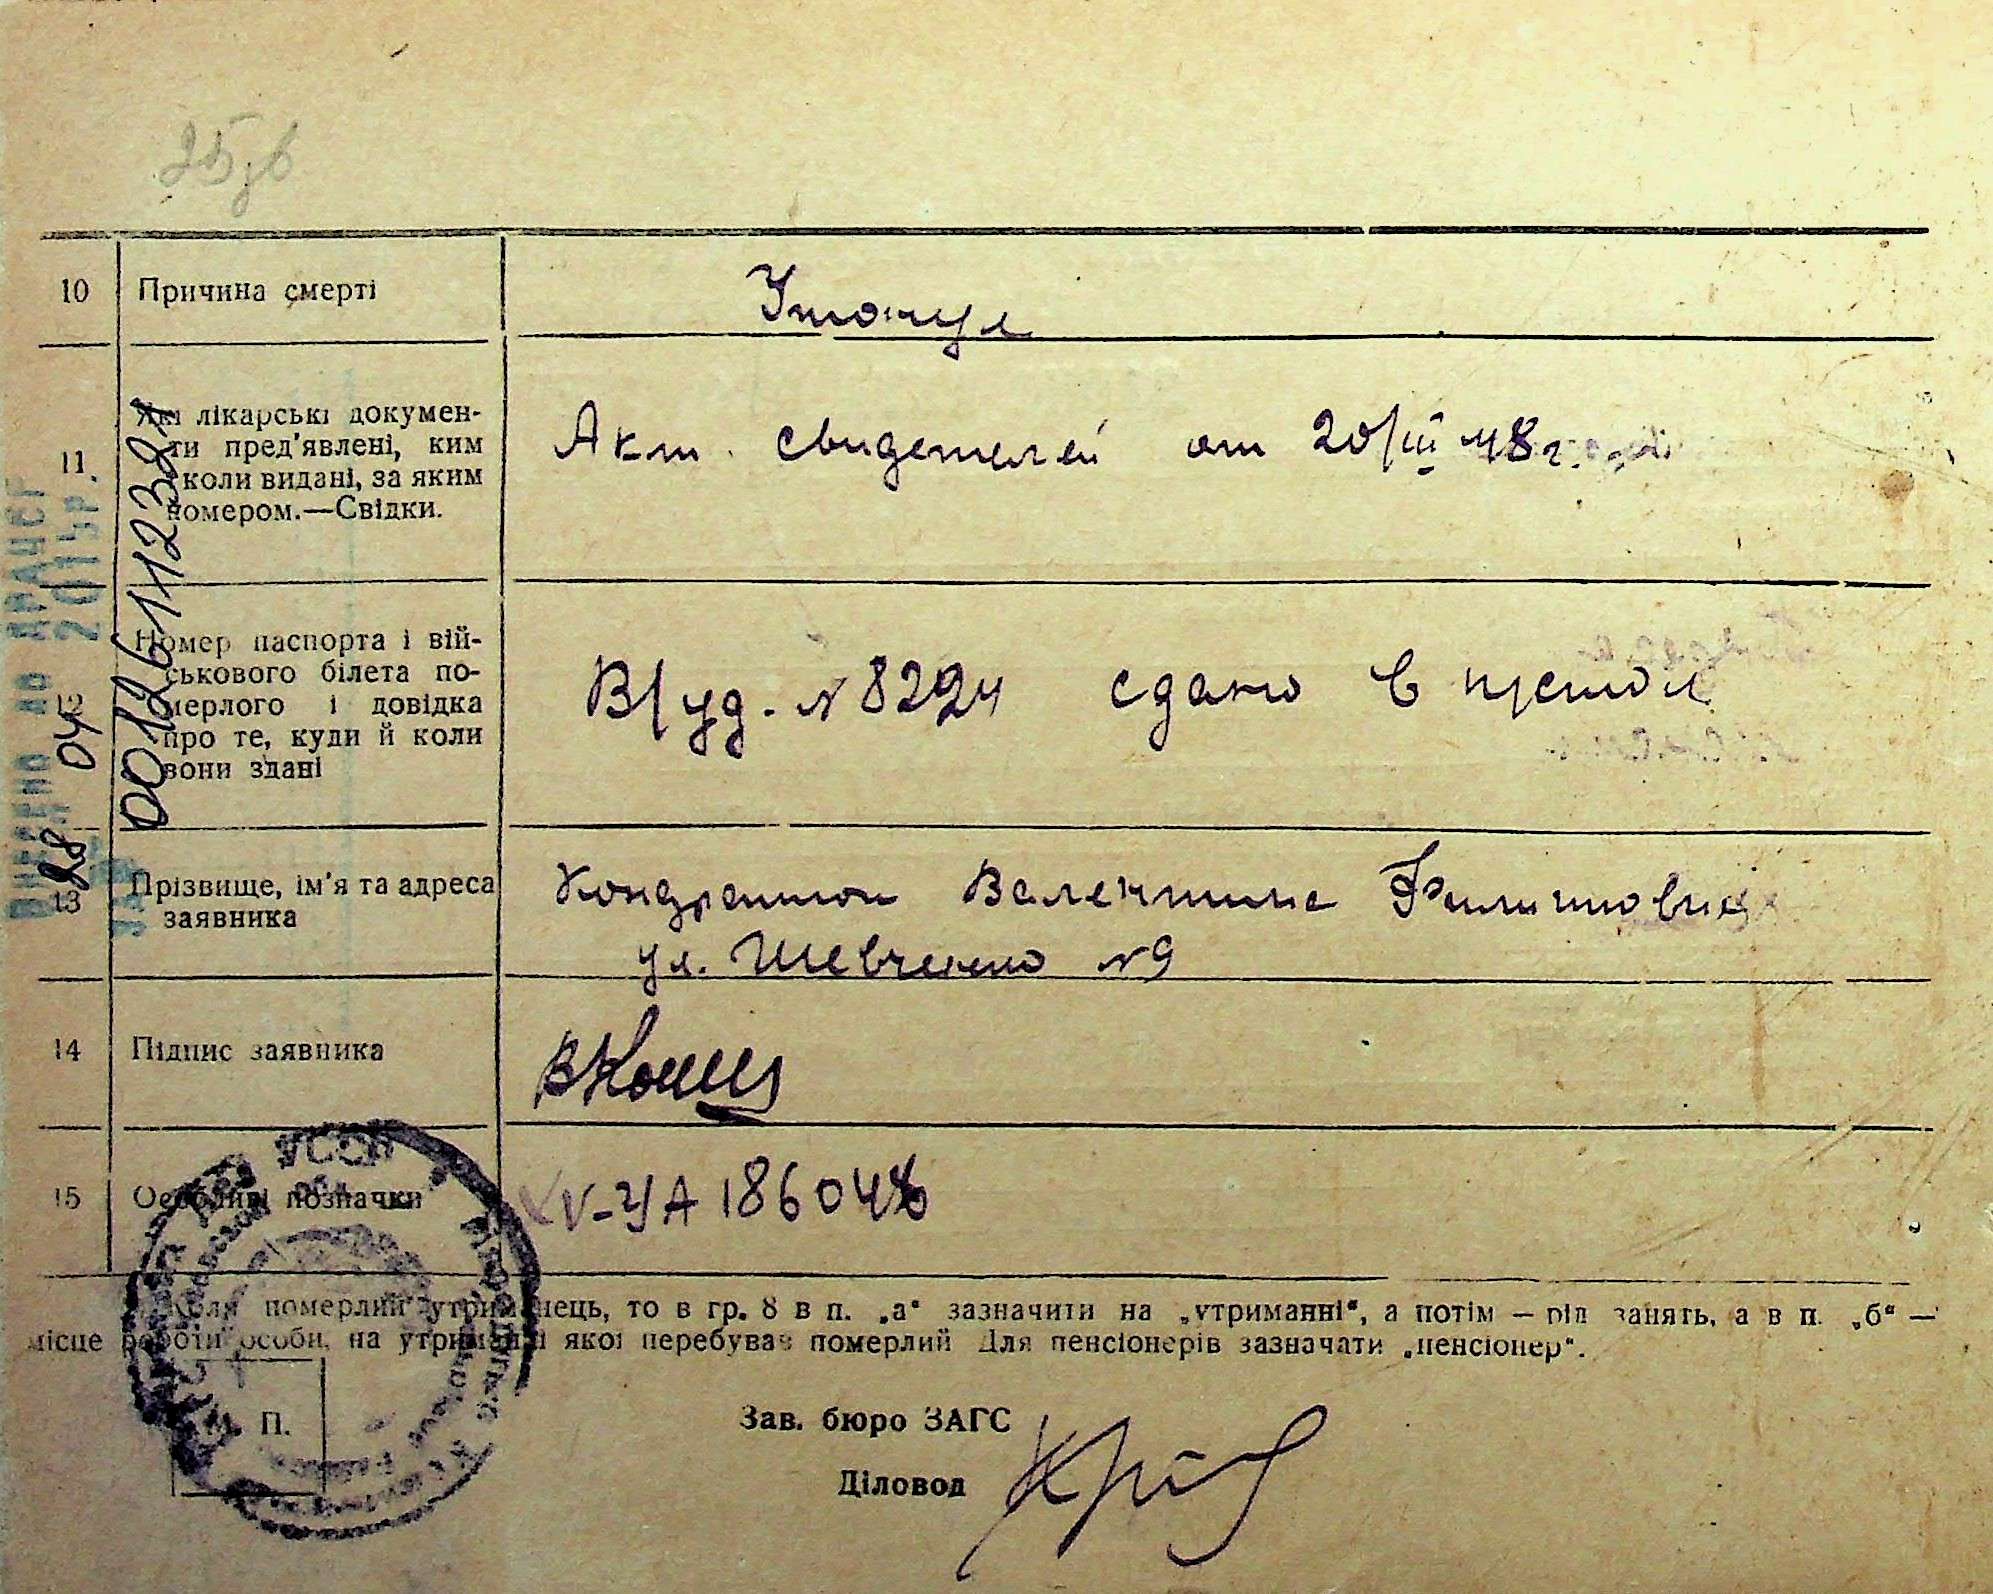 10 Причина смерті
Утонул
11 Які лікарські докумен-
ти пред'явлені, ким
і коли видані, за яким
номером.—Свідки.
Акт свидетелей от 20/III 48 г.
12 Номер паспорта і вій-
ськового білета по-
мерлого і довідка
про те, куди й коли
вони здані
В/уд. № 8224 сдано в
13 Прізвище, ім'я та адреса
заявника
Валентина
ул. Шевченко №9
14 Підпис заявника
15 Особливі позначки
УА 186048
Коли померлий утриманець, то в гр. 8 в п. „а“ зазначити на „утриманні“, а потім — рід занять, а в п. „б“ —
місце роботи особи, на утриманні якої перебував померлий Для пенсіонерів зазначати „пенсіонер“.
М. П.
Зав. бюро ЗАГС
Діловод
ВНЕСЕНО ДО ДРАЦСГ
28 04 201 р.
ЗА №